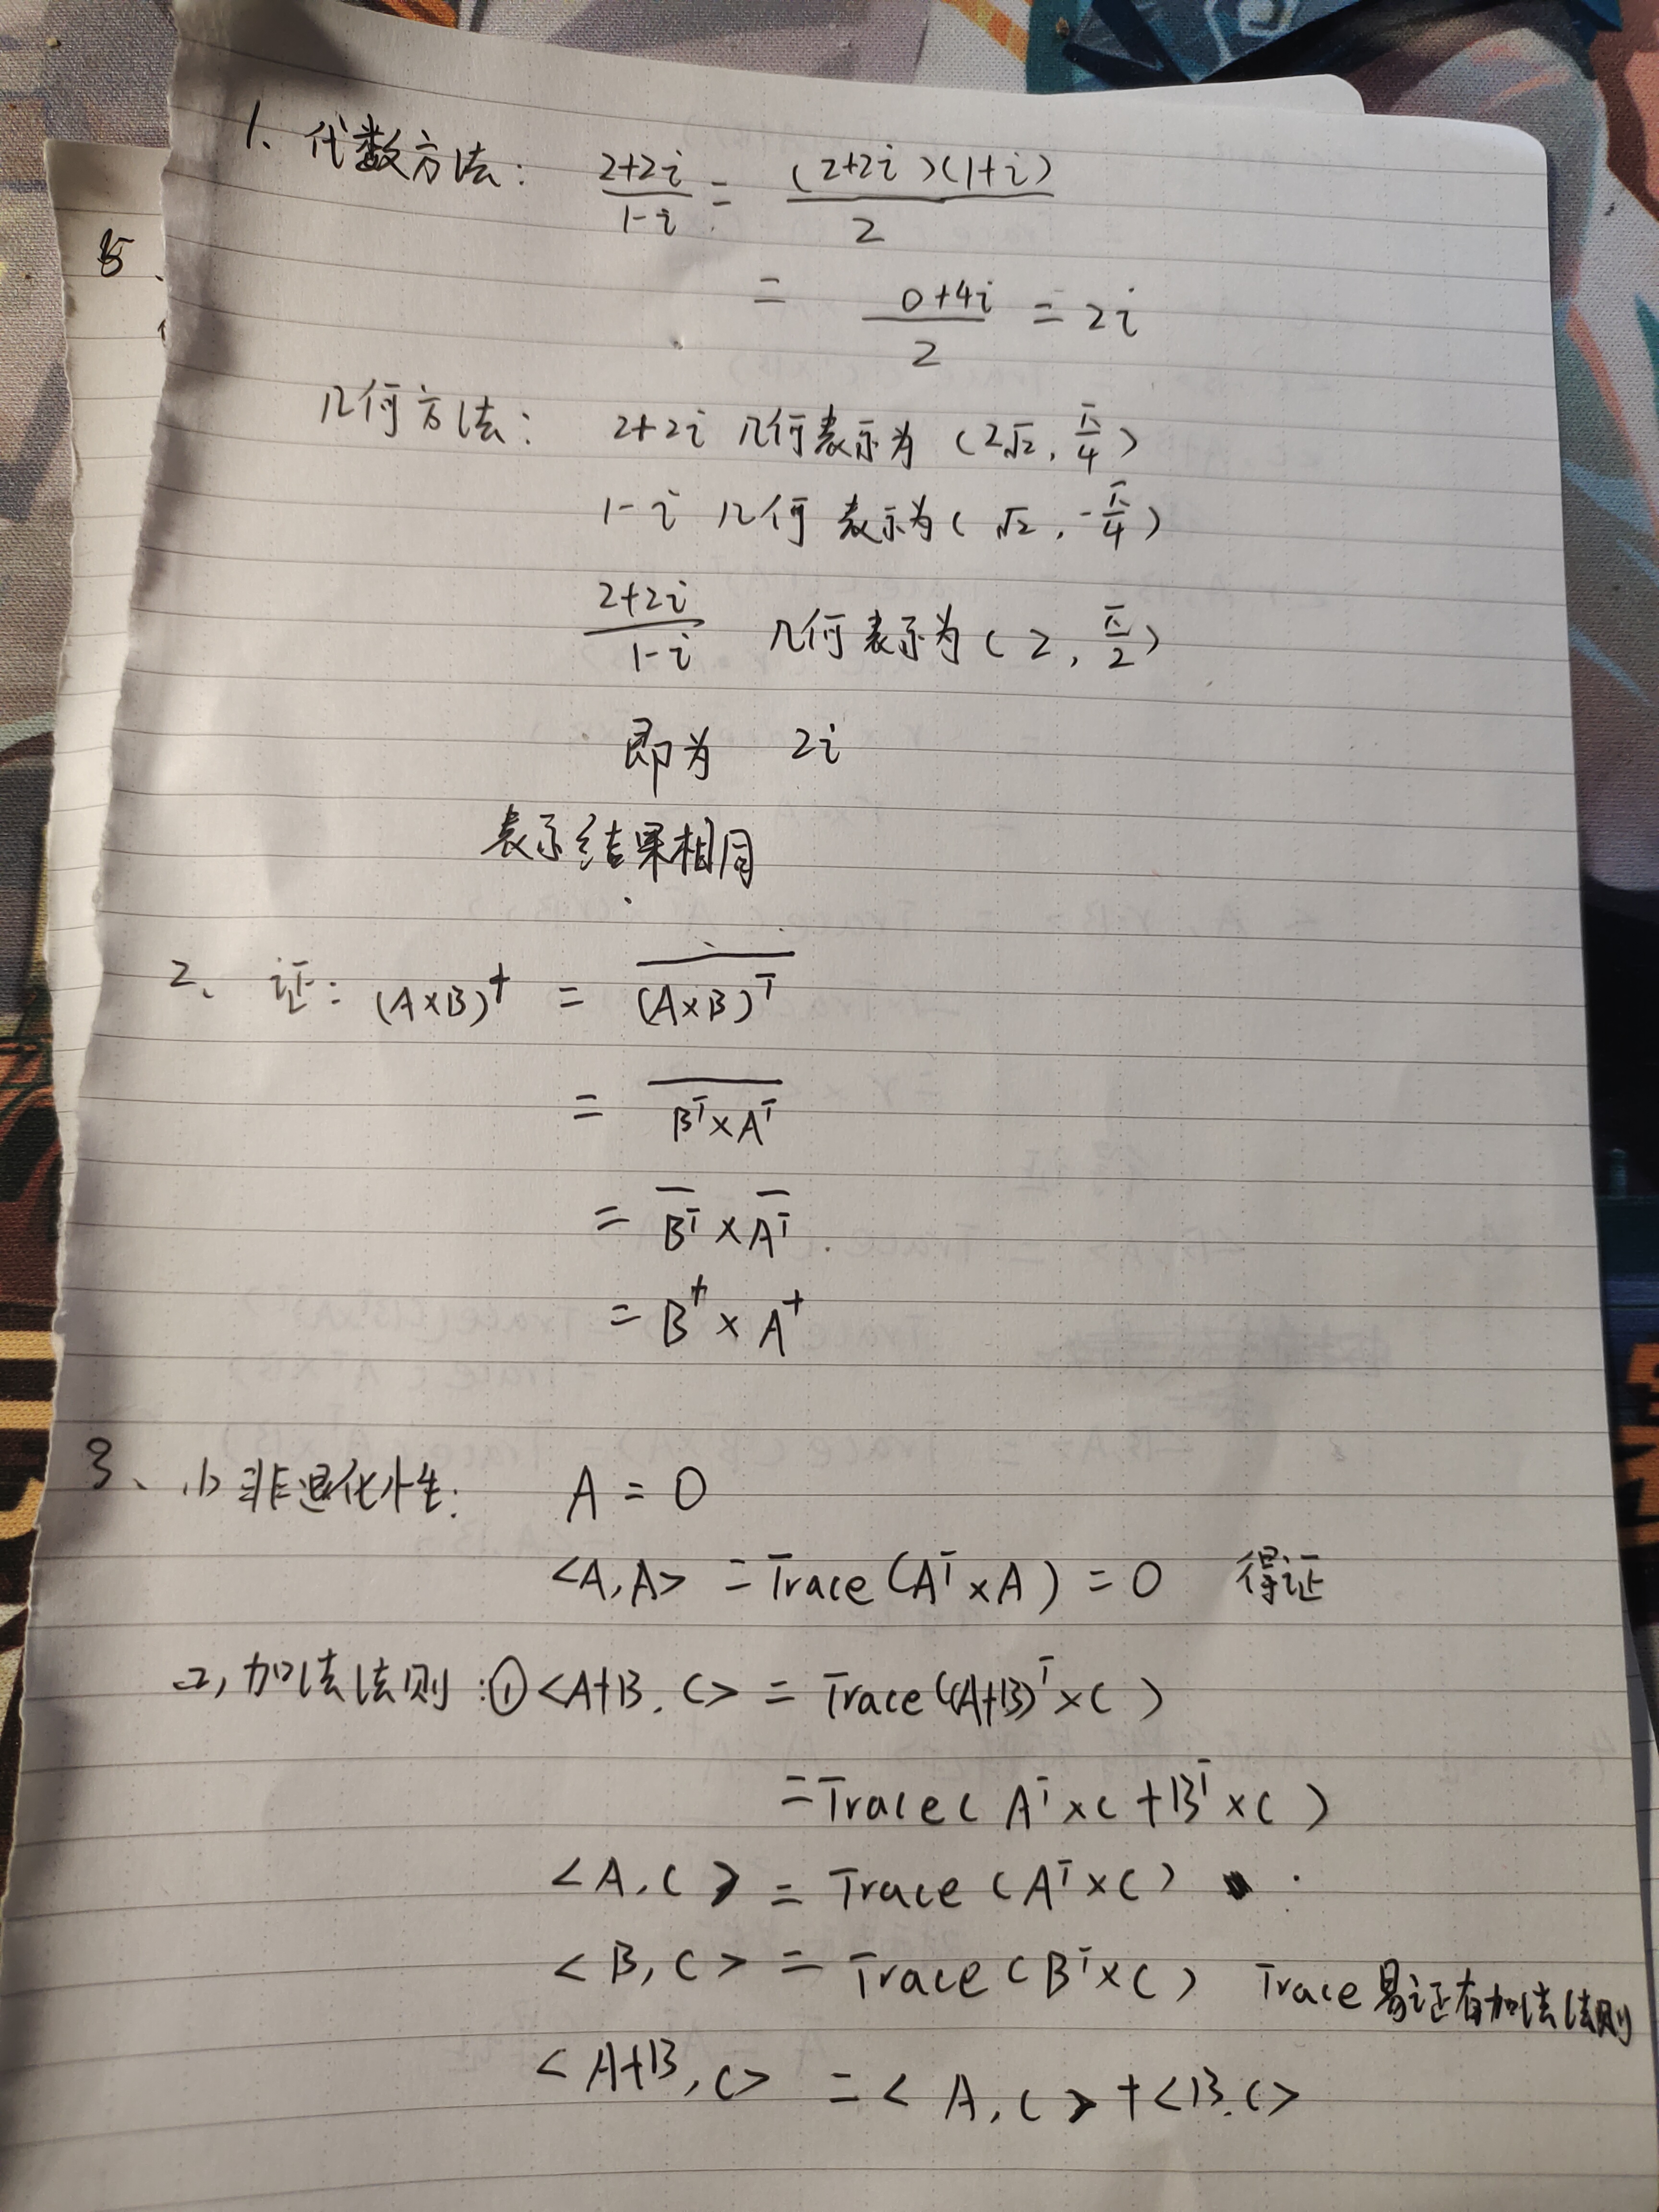 1、代数方法: (2+2i)/(1-i) = (2+2i)(1+i)/2
= (0+4i)/2 = 2i
几何方法: 2+2i 几何表示为 (2√2, π/4)
1-i 几何表示为 (√2, -π/4)
(2+2i)/(1-i) 几何表示为 (2, π/2)
即为 2i
表示结果相同
2、证: (A×B)† = \overline{(A×B)^T}
= \overline{B^T×A^T}
= \overline{B^T}×\overline{A^T}
= B†×A†
3、(1) 非退化性: A = 0
<A,A> = Trace(A^T×A) = 0 得证
(2) 加法法则: ①<A+B, C> = Trace((A+B)^T×C)
= Trace(A^T×C+B^T×C)
<A, C> = Trace(A^T×C)
<B, C> = Trace(B^T×C) Trace易证有加法法则
<A+B, C> = <A, C> + <B, C>
5、